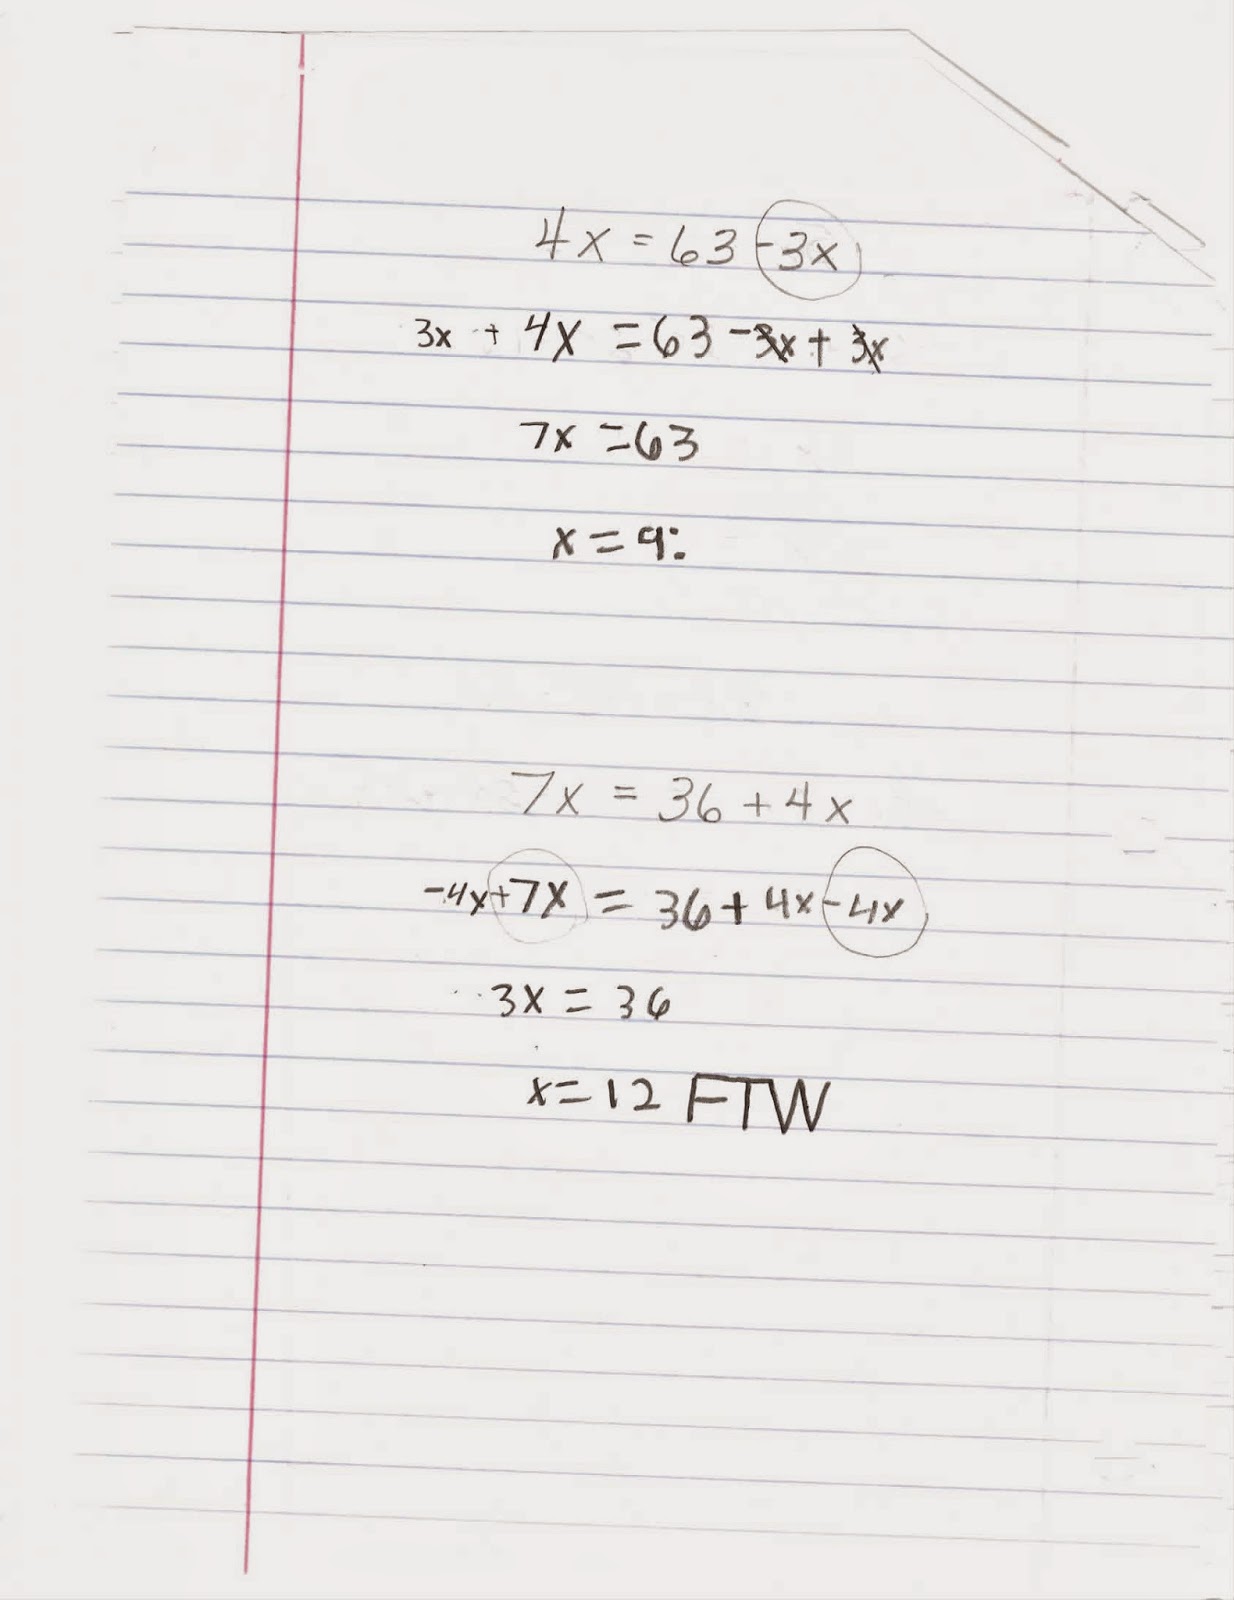 4x = 63 -3x
3x + 4x = 63 -3x + 3x
7x = 63
x = 9:
7x = 36 + 4x
-4x+7x = 36 + 4x - 4x
3x = 36
x = 12 FTW